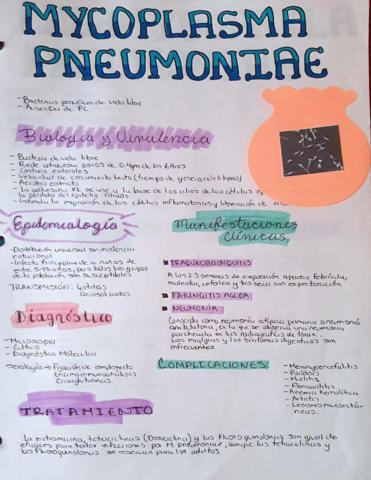 MYCOPLASMA
PNEUMONIAE
- Bacterias pequeñas de vida libre
- Ausencia de PC
Biología y Virulencia
- Bacteria de vida libre
- Puede atravesar poros de 0.4μm de los filtros
- Contiene esteroles
- Velocidad de crecimiento lenta (tiempo de generación 6 horas)
- Aerobio estricto
- La adhesina P1 se une a la base de los cilios de las células
la pérdida del epitelio
- Estimula la migración de las células inflamatorias y liberación de
Epidemiología
- Distribución universal sin incidencia
estacional
- Infecta principalmente a niños de
entre 5-15 años, pero todos los grupos
de la población son susceptibles
TRANSMISIÓN: Gotitas
Diagnóstico
- Microscopia
- Cultivo
- Diagnóstico Molecular
Serología → Fijación de complemento
Enzimoinmunoanálisis
Crioaglutininas
TRATAMIENTO
Manifestaciones
Clínicas
TRAQUEOBRONQUITIS
A las 2-3 semanas de exposición aparece febrícula,
malestar, cefalea y tos seca sin expectoración
FARINGITIS AGUDA
NEUMONÍA
Conocida como neumonía atípica primaria o neumonía
ambulatoria, en la que se observa una neumonía
parcheada en las radiografías de tórax.
Las mialgias y los síntomas digestivos son
infrecuentes.
COMPLICACIONES
- Meningoencefalitis
- Parálisis
- Mielitis
- Pericarditis
- Anemia hemolítica
- Artritis
- Lesiones mucocutá-
neas.
La eritromicina, tetraciclinas (Doxiciclina) y las fluoroquinolonas son igual de
eficaces para tratar infecciones por M. pneumoniae, aunque las tetraciclinas y
las fluoroquinolonas se reservan para los adultos.